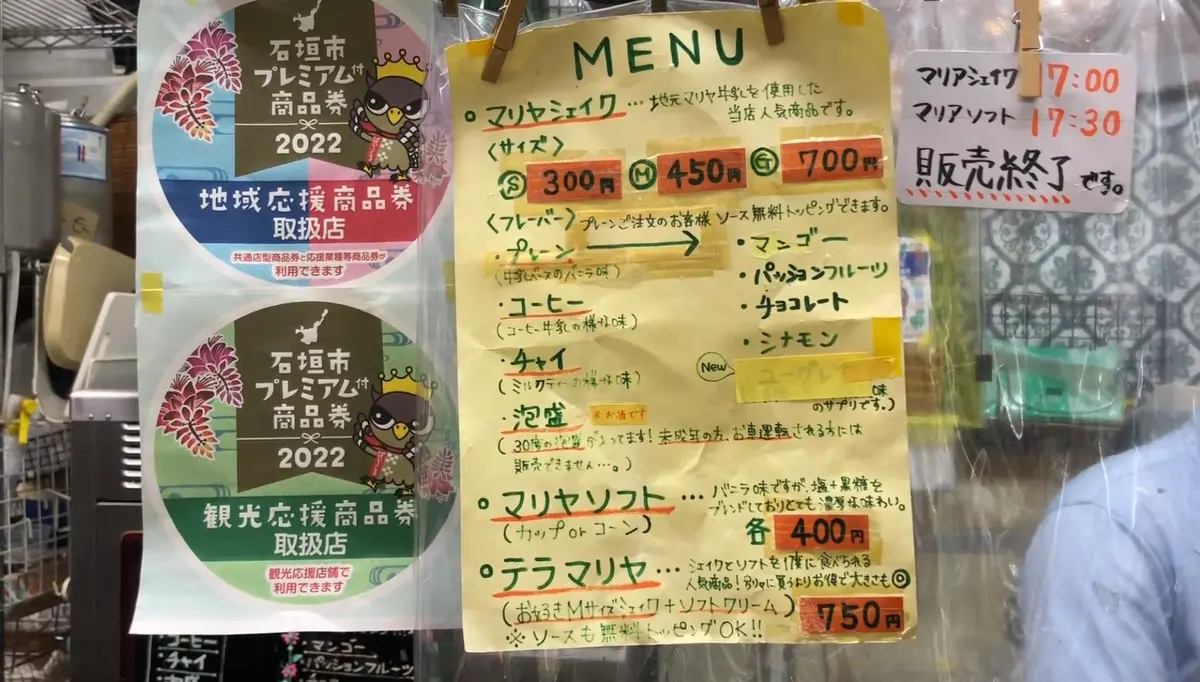 石垣市
プレミアム付
商品券
2022
地域応援商品券
取扱店
共通店型商品券と応援業種等商品券が
利用できます
石垣市
プレミアム付
商品券
2022
観光応援商品券
取扱店
観光応援店舗で
利用できます
MENU
。マリヤシェイク…地元マリヤ牛乳を使用した
当店人気商品です。
〈サイズ〉
Ⓢ 300円 Ⓜ 450円 700円
〈フレーバー〉プレーンご注文のお客様 ソース無料トッピングできます。
・プレーン
(牛乳ベースのバニラ味)
・コーヒー
(コーヒー牛乳の様な味)
・チャイ
(ミルクティーの様な味)
・泡盛 ※お酒です
(30度の泡盛が入ってます!未成年の方、お車運転される方には
販売できません…。)
・マンゴー
・パッションフルーツ
・チョコレート
・シナモン
New
味
のサプリです。)
。マリヤソフト…バニラ味ですが、塩+黒糖を
ブレンドしておりとても濃厚な味わい。
(カップorコーン) 各 400円
。テラマリヤ…シェイクとソフトを1度に食べられる
人気商品!別々に買うよりお得で大きさも◎
(お好きMサイズシェイク+ソフトクリーム) 750円
※ソースも無料トッピングOK!!
マリアシェイク 17:00
マリアソフト 17:30
販売終了です。
コーヒー
チャイ
・マンゴー
・パッションフルーツ